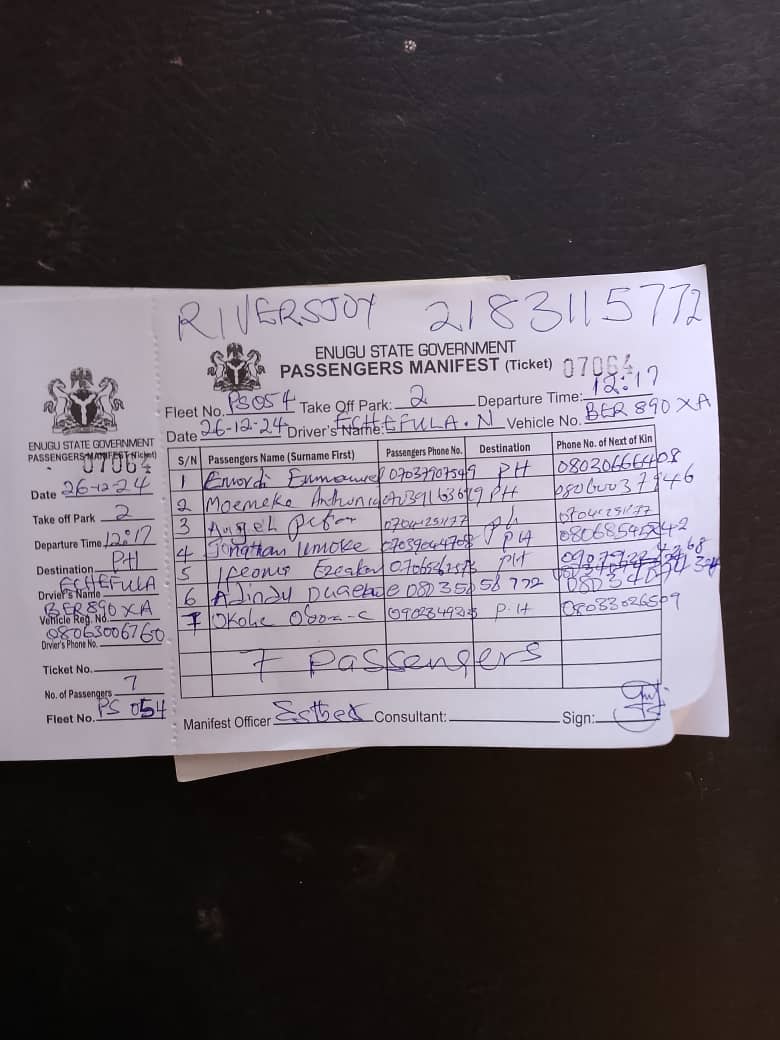 RIVERSJOY 2183115772
ENUGU STATE GOVERNMENT
PASSENGERS MANIFEST (Ticket) 07064
Fleet No. PS054 Take Off Park: 2 Departure Time: 12:17
Date 26-12-24 Driver's Name: ECHEFULA.N Vehicle No. BER 890 XA
S/N Passengers Name (Surname First) Passengers Phone No. Destination Phone No. of Next of Kin
1 Emmanuel PH 08030666408
2 Moemeka Anthonia PH
3 Angel Peter 07041251177 ph 07041251177
4 Jonathan PH
5 Ifeoma PH
6 08035056772
7 Okoke P.H 08033026509
7 Passengers
Manifest Officer Esther Consultant: Sign:
ENUGU STATE GOVERNMENT
PASSENGERS MANIFEST (Ticket)
07064
Date 26-12-24
Take off Park 2
Departure Time 12:17
Destination PH
ECHEFULA
Drvier's Name
BER 890 XA
Vehicle Reg. No.
08063006760
Drvier's Phone No.
Ticket No.
No. of Passengers 7
Fleet No. PS 054